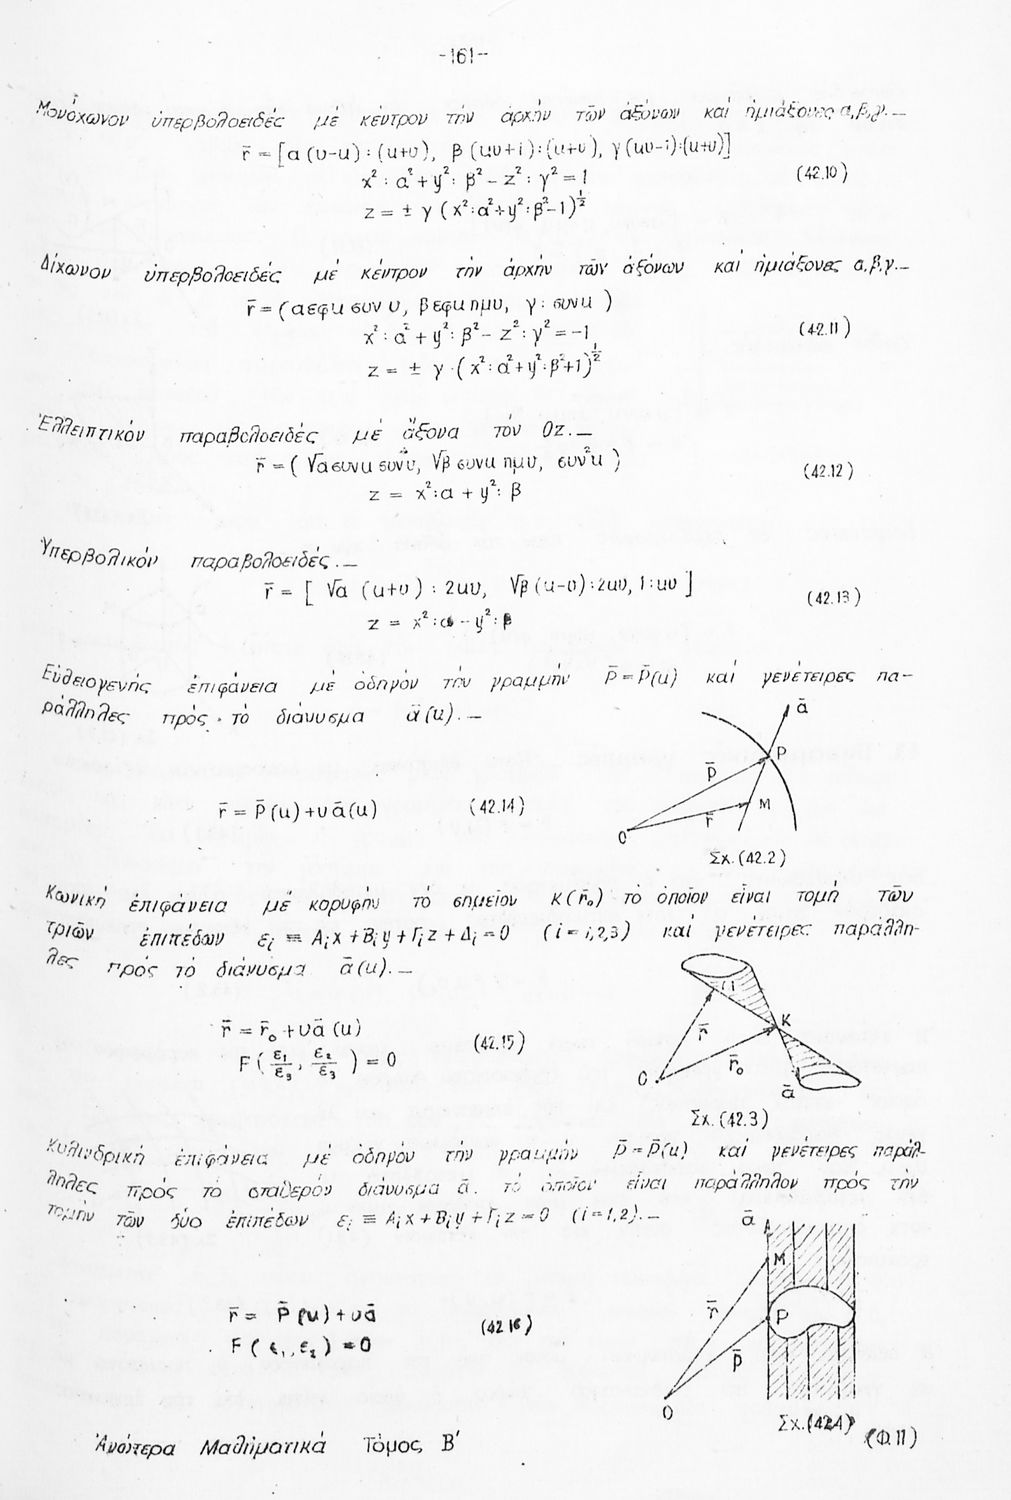 -161-
Μονόχωνον ὑπερβολοειδές μέ κέντρον τήν ἀρχήν τῶν ἀξόνων καί ἡμιάξονες α,β,γ.—
r̄ = [α(υ-u):(u+υ), β(uυ+1):(u+υ), γ(uυ-1):(u+υ)]
x²:α²+y²:β²-z²:γ²=1 (42.10)
z = ± γ (x²:α²+y²:β²-1)^½
Δίχωνον ὑπερβολοειδές μέ κέντρον τήν ἀρχήν τῶν ἀξόνων καί ἡμιάξονες α,β,γ.—
r̄ = (αεφu συν υ, βεφu ημυ, γ: συνu)
x²:α²+y²:β²-z²:γ²=-1 (42.11)
z = ± γ·(x²:α²+y²:β²+1)^½
Ἐλλειπτικόν παραβολοειδές μέ ἄξονα τόν Oz.—
r̄ = (√α συνu συνυ, √β συνu ημυ, συν²u) (42.12)
z = x²:α + y²:β
Ὑπερβολικόν παραβολοειδές.—
r̄ = [√α (u+υ):2uυ, √β(u-υ):2uυ, 1:uυ] (42.13)
z = x²:α - y²:β
Εὐθειογενής ἐπιφάνεια μέ ὁδηγόν τήν γραμμήν P̄=P̄(u) καί γενέτειρες πα-
ράλληλες πρός τό διάνυσμα ᾱ(u).—
ᾱ
P
p̄
r̄ = P̄(u)+υᾱ(u) (42.14)
M
r̄
O
Σχ.(42.2)
Κωνική ἐπιφάνεια μέ κορυφήν τό σημεῖον K(r̄₀) τό ὁποῖον εἶναι τομή τῶν
τριῶν ἐπιπέδων εᵢ ≡ Aᵢx+Bᵢy+Γᵢz+Δᵢ=0 (i=1,2,3) καί γενέτειρες παράλλη-
λες πρός τό διάνυσμα ᾱ(u).—
r̄ = r̄₀+υᾱ(u) (42.15)
K
r̄
F(ε₁/ε₃, ε₂/ε₃) = 0
r̄₀
O
ᾱ
Σχ.(42.3)
Κυλινδρική ἐπιφάνεια μέ ὁδηγόν τήν γραμμήν p̄=p̄(u) καί γενέτειρες παράλ-
ληλες πρός τό σταθερόν διάνυσμα ᾱ. τό ὁποῖον εἶναι παράλληλον πρός τήν
τομήν τῶν δύο ἐπιπέδων εᵢ ≡ Aᵢx+Bᵢy+Γᵢz=0 (i=1,2).—
ᾱ
M
r̄
r̄ = P̄(u)+υᾱ (42.16)
P
F(ε₁,ε₂)=0
p̄
O
Σχ.(42.4)
Ἀνώτερα Μαθηματικά Τόμος Β΄ (Φ.11)